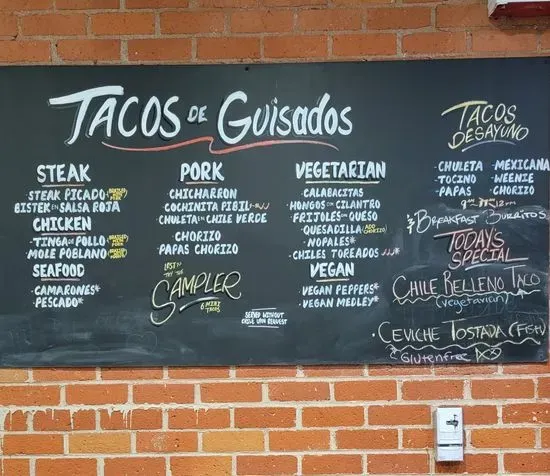 TACOS DE GUISADOS
STEAK
STEAK PICADO
BISTEK EN SALSA ROJA
CHICKEN
TINGA DE POLLO
MOLE POBLANO
SEAFOOD
CAMARONES*
PESCADO*
PORK
CHICHARRON
COCHINITA PIBIL
CHULETA EN CHILE VERDE
CHORIZO
PAPAS CHORIZO
TRY THE
SAMPLER
6 MINI TACOS
SERVED WITHOUT
CHILE UPON REQUEST
VEGETARIAN
CALABACITAS
HONGOS CON CILANTRO
FRIJOLES CON QUESO
QUESADILLA (ADD CHORIZO)
NOPALES*
CHILES TOREADOS
VEGAN
VEGAN PEPPERS*
VEGAN MEDLEY*
TACOS
DESAYUNO
·CHULETA ·MEXICANA
·TOCINO ·WEENIE
·PAPAS ·CHORIZO
9AM 12PM
BREAKFAST BURRITOS
TODAY'S
SPECIAL
CHILE RELLENO TACO
(vegetarian)
·CEVICHE TOSTADA (FISH)
(Glutenfree)